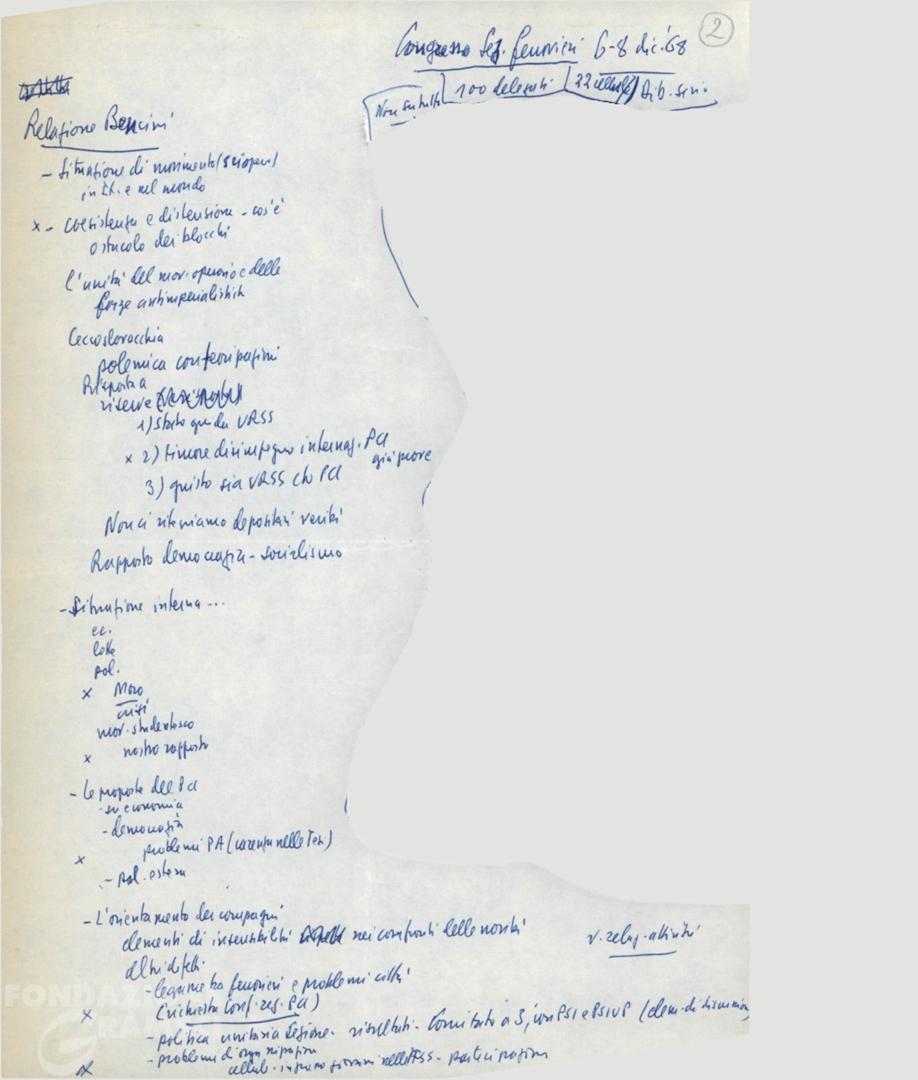 2
Congresso Sez. ferrovieri 6-8 dic. '68
100 delegati
22 cellule
Dib. seri.
Relazione Bencini
- Situazione di movimento (scioperi)
in It. e nel mondo
x - Coesistenza e distensione - cos'è
ostacolo dei blocchi
L'unità del mov. operaio e delle
forze antimperialistiche
Cecoslovacchia
polemica con
Risposta a
riserve
1) Stato guida URSS
x 2) timore disimpegno internaz. PCI
già prove
3) giusto sia URSS che PCI
Non ci riteniamo depositari verità
Rapporto democrazia - socialismo
- Situazione interna ...
ec.
lotte
pol.
x Moro
crisi
mov. studentesco
x nostro rapporto
- Le proposte del PCI
- su economia
- democrazia
x problemi PA (carenza nelle Tesi)
- pol. estera
- L'orientamento dei compagni
elementi di insensibilità nei confronti delle novità
v. relaz. attività
altri difetti
- legame tra ferrovieri e problemi città
x (richiesta Conf. reg. PCI)
- politica unitaria Sezione - risultati - Comitato a 3, con PSI e PSIUP (elem. di discussione
- problemi d'organizzazione
x cellule - giovani nelle FFSS - partecipazione
FONDAZIONE
GRAMSCI